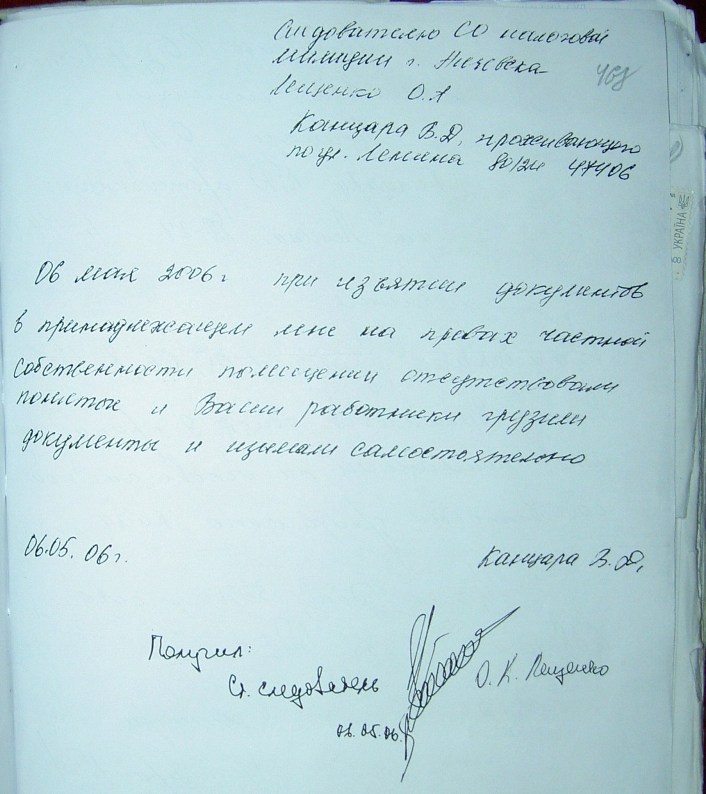 Следователю СО налоговой
милиции г. Ижевска
Лещенко О.А
Канцара В.Д, проживающего
по ул. Ленина 80/24 47406
06 мая 2006г при изъятии документов
в принадлежащем мне на правах частной
собственности помещении отсутствовали
понятые и Ваши работники грузили
документы и изымали самостоятельно
06.05.06г.
Канцара В.Д,
Получил:
Ст. следователь
О. К. Лещенко
06.05.06.
8 УКРАЇНА